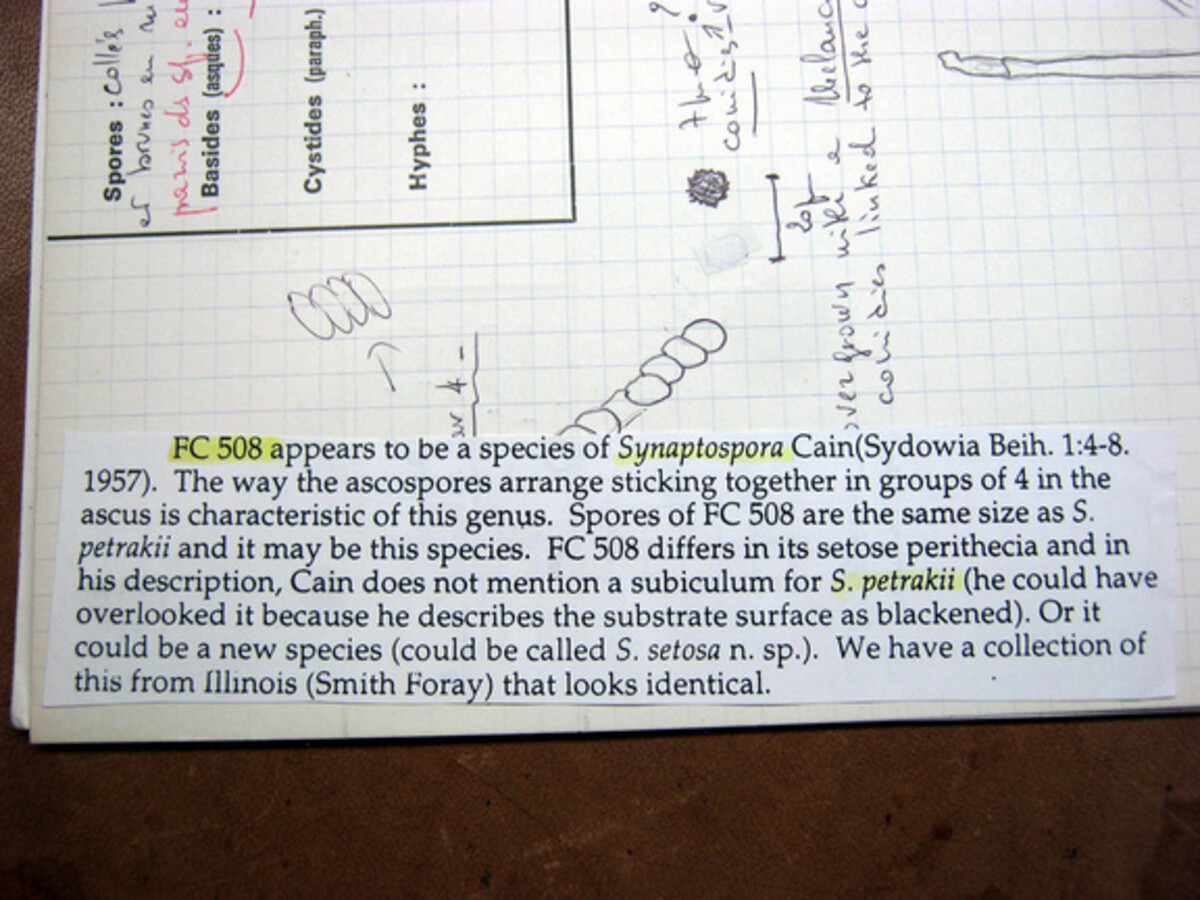 Spores : collés
et brunes en
Basides (asques) :
Cystides (paraph.)
Hyphes :
conidies
20µ
overgrown with a Melano
conidies linked to the
par 4 -
FC 508 appears to be a species of Synaptospora Cain(Sydowia Beih. 1:4-8.
1957). The way the ascospores arrange sticking together in groups of 4 in the
ascus is characteristic of this genus. Spores of FC 508 are the same size as S.
petrakii and it may be this species. FC 508 differs in its setose perithecia and in
his description, Cain does not mention a subiculum for S. petrakii (he could have
overlooked it because he describes the substrate surface as blackened). Or it
could be a new species (could be called S. setosa n. sp.). We have a collection of
this from Illinois (Smith Foray) that looks identical.